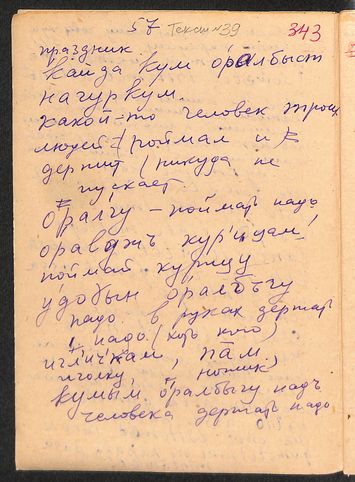 57 Текст №39 343
праздник
кайда кум оралбыст
начуркум.
какой-то человек троих
людей поймал и
держит (никуда не
пускает
оралгу – поймать надо
оравджъ кур'ицам!
поймай курицу
удобын оралбъгу
надо в руках держать
надо (хоть кого)
игл'ич'кам, пāм.
иголку, ножик,
кумым оралбыгу надъ
человека держать надо